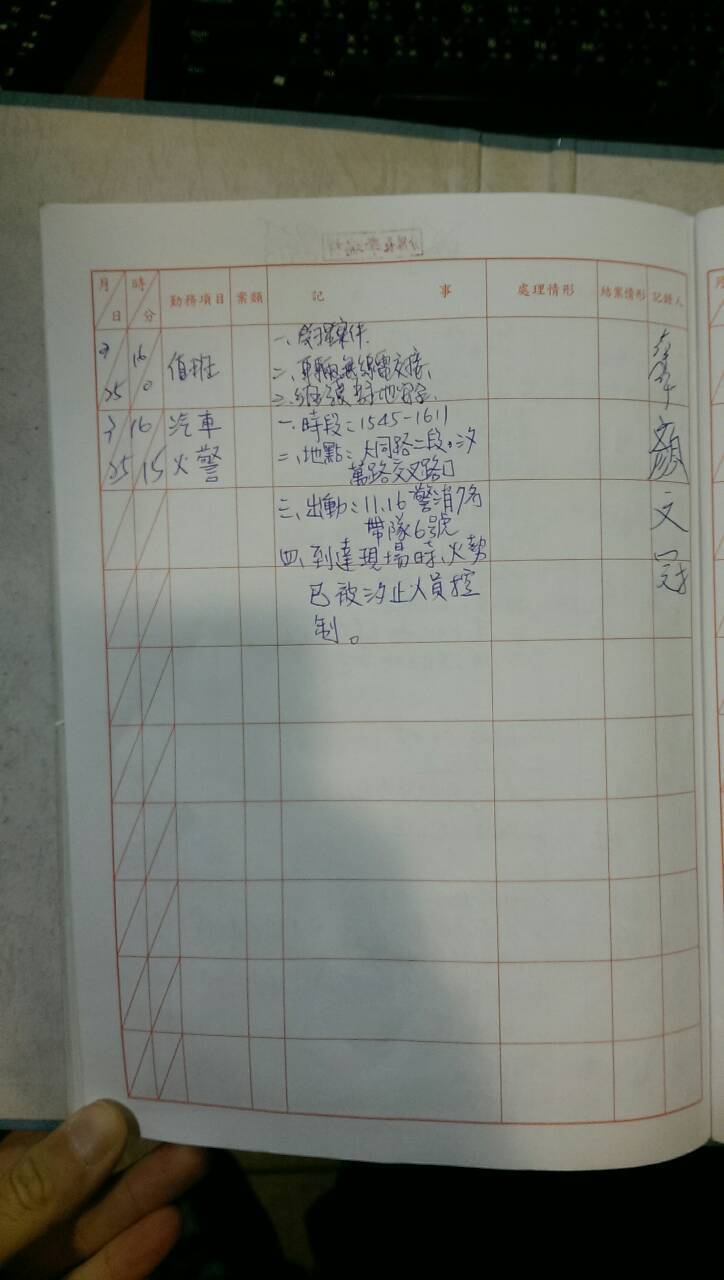 月 日
時 分
勤務項目
案類
記 事
處理情形
結案情形
記錄人
25
16 0
值班
一、受理案件.
二、車輛無線電交接.
三、
25
16 15
汽車
火警
一、時段：1545-1611
二、地點：大同路二段、汐
萬路交叉路口
三、出動：11.16 警消7名
帶隊6號
四、到達現場時、火勢
已被汐止人員控
制。
顏
文
冠